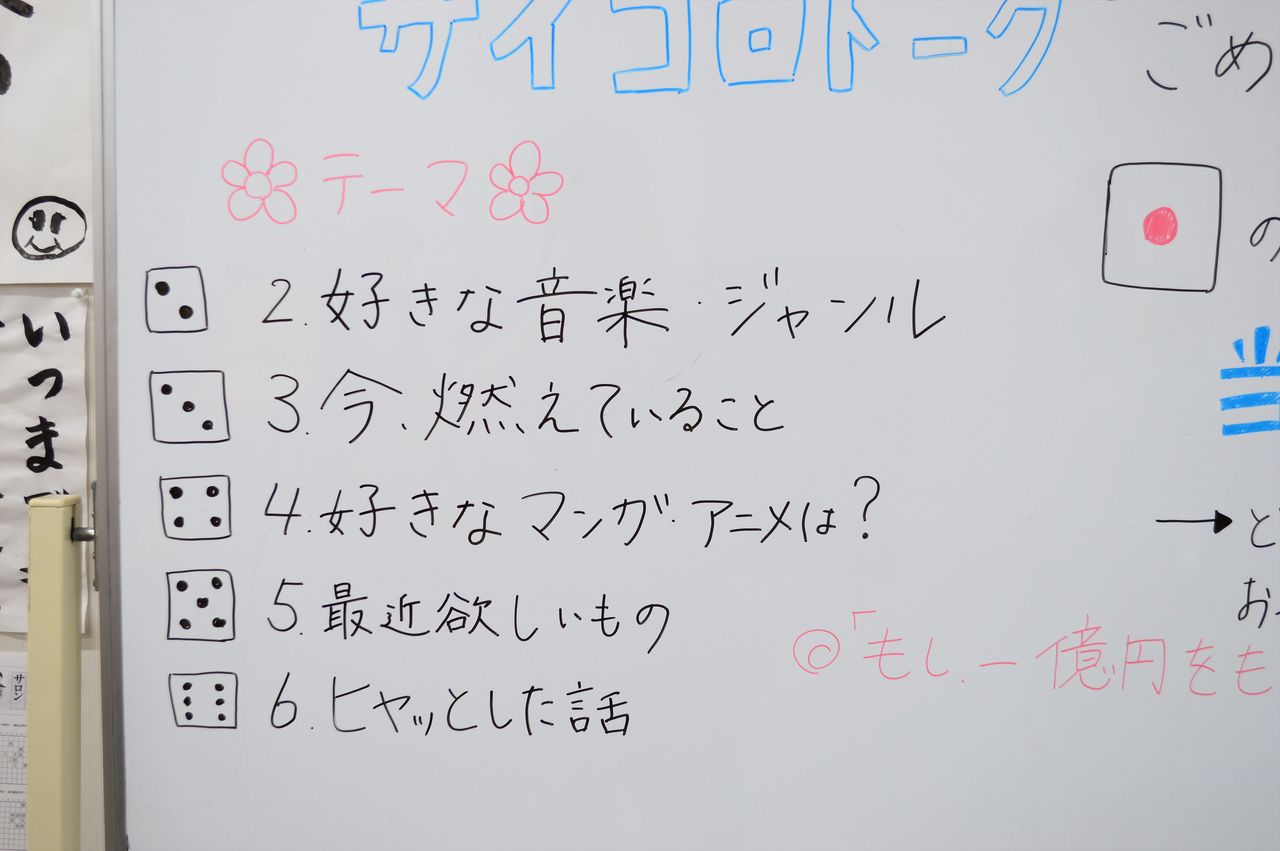 サイコロトーク
ごめ
テーマ
の
2. 好きな音楽・ジャンル
3. 今、燃えていること
4. 好きなマンガ・アニメは?
→ と
5. 最近欲しいもの
お
◎「もし、一億円をも
6. ヒヤッとした話
いつまで
サロン